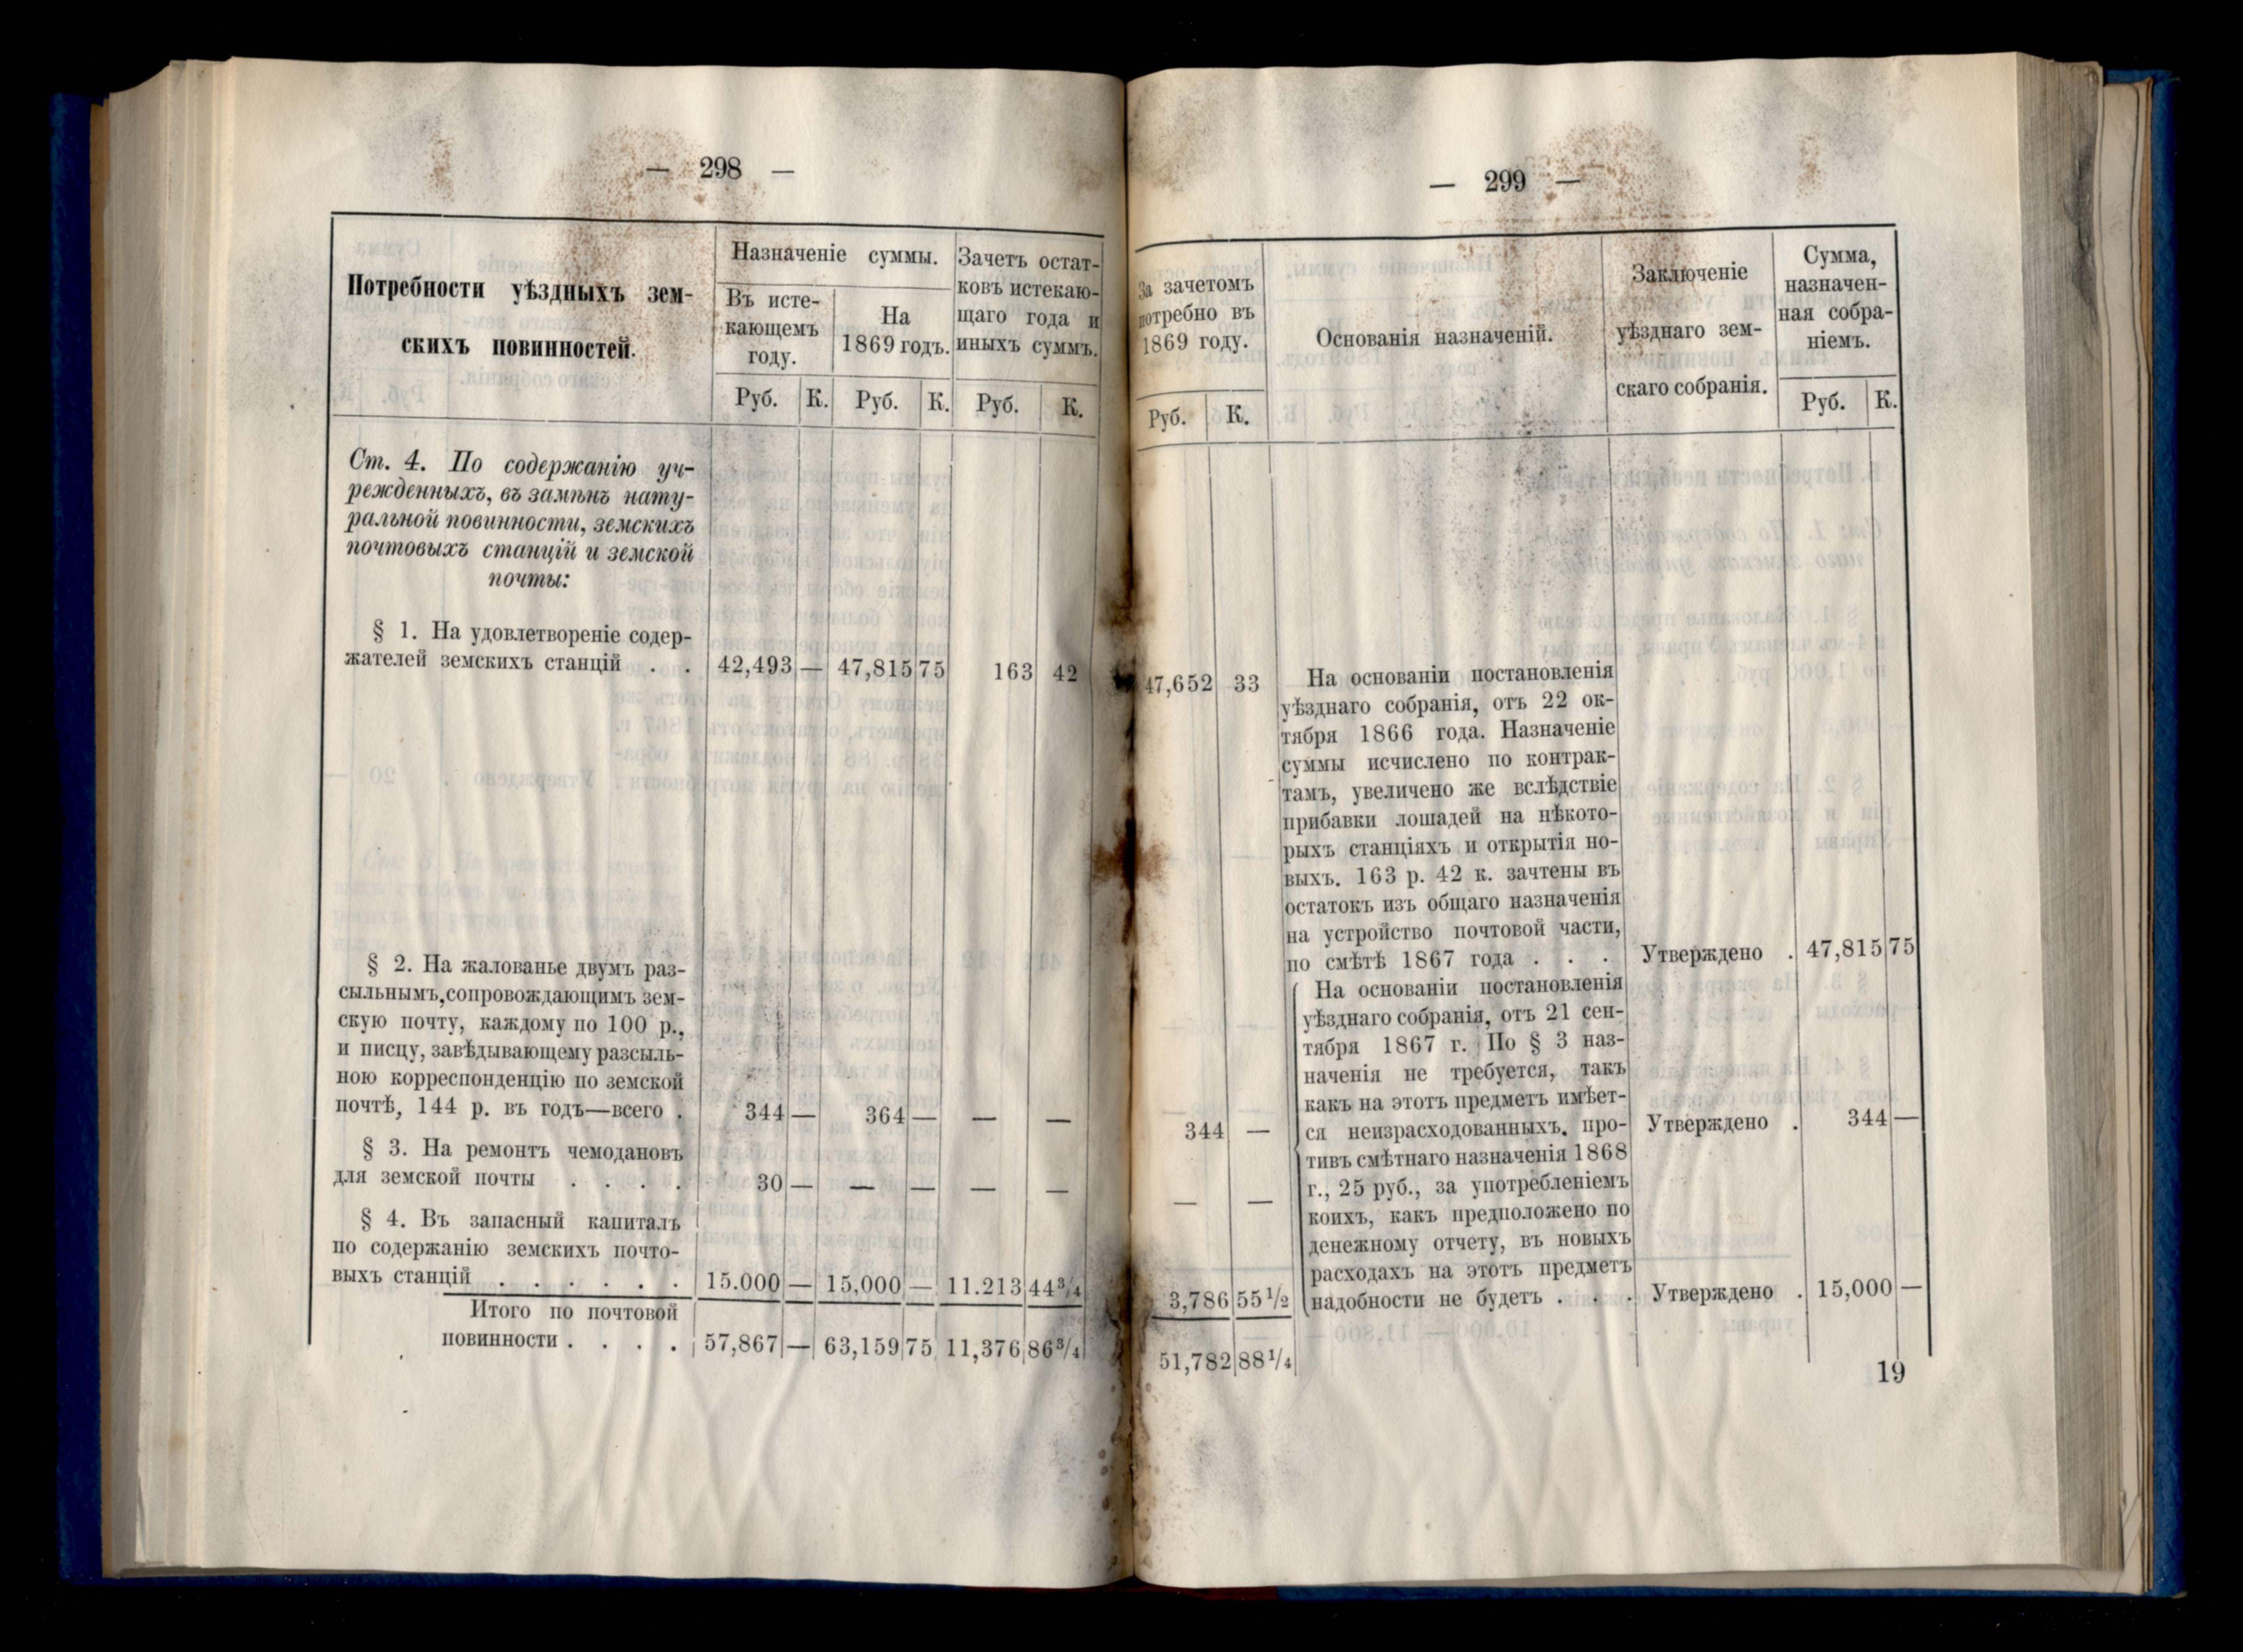 — 298 —
Потребности уѣздныхъ зем-
скихъ повинностей.
Назначеніе суммы.
Въ исте-
кающемъ
году.
На
1869 годъ.
Зачетъ остат-
ковъ истекаю-
щаго года и
иныхъ суммъ.
Руб. К. Руб. К. Руб. К.
Ст. 4. По содержанію уч-
режденныхъ, въ замѣнъ нату-
ральной повинности, земскихъ
почтовыхъ станцій и земской
почты:
§ 1. На удовлетвореніе содер-
жателей земскихъ станцій . . 42,493 — 47,815 75 163 42
§ 2. На жалованье двумъ раз-
сыльнымъ, сопровождающимъ зем-
скую почту, каждому по 100 р.,
и писцу, завѣдывающему разсыль-
ною корреспонденцію по земской
почтѣ, 144 р. въ годъ—всего . 344 — 364 — — —
§ 3. На ремонтъ чемодановъ
для земской почты . . . . 30 — — — — —
§ 4. Въ запасный капиталъ
по содержанію земскихъ почто-
выхъ станцій . . . . . . 15.000 — 15,000 — 11.213 44³/₄
Итого по почтовой
повинности . . . . 57,867 — 63,159 75 11,376 86³/₄
— 299 —
За зачетомъ
потребно въ
1869 году.
Руб. К.
Основанія назначеній.
Заключеніе
уѣзднаго зем-
скаго собранія.
Сумма,
назначен-
ная собра-
ніемъ.
Руб. К.
47,652 33 На основаніи постановленія
уѣзднаго собранія, отъ 22 ок-
тября 1866 года. Назначеніе
суммы исчислено по контрак-
тамъ, увеличено же вслѣдствіе
прибавки лошадей на нѣкото-
рыхъ станціяхъ и открытія но-
выхъ. 163 р. 42 к. зачтены въ
остатокъ изъ общаго назначенія
на устройство почтовой части,
по смѣтѣ 1867 года . . . Утверждено . 47,815 75
На основаніи постановленія
уѣзднаго собранія, отъ 21 сен-
тября 1867 г. По § 3 наз-
наченія не требуется, такъ
какъ на этотъ предметъ имѣет-
344 — ся неизрасходованныхъ. про- Утверждено . 344 —
тивъ смѣтнаго назначенія 1868
— — г., 25 руб., за употребленіемъ
коихъ, какъ предположено по
денежному отчету, въ новыхъ
расходахъ на этотъ предметъ
3,786 55¹/₂ надобности не будетъ . . . Утверждено . 15,000 —
51,782 88¹/₄
19